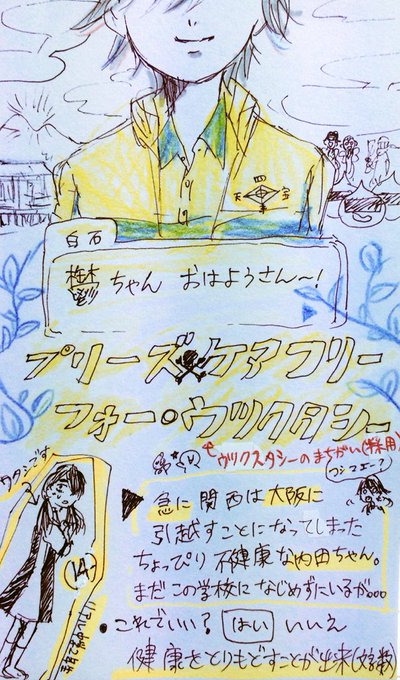 四
天 宝
寺
白石
鬱ちゃん おはようさん〜!
プリーズケアフリー
フォー・ウツクタシー
ウツクスタシーのまちがい(採用)
ワタシです
急に関西は大阪に
引越すことになってしまった
ちょっぴり不健康な内田ちゃん。
まだこの学校になじめずにいるが。。。
14
・これでいい? はい いいえ
健康をとりもどすことが出来(文字数)